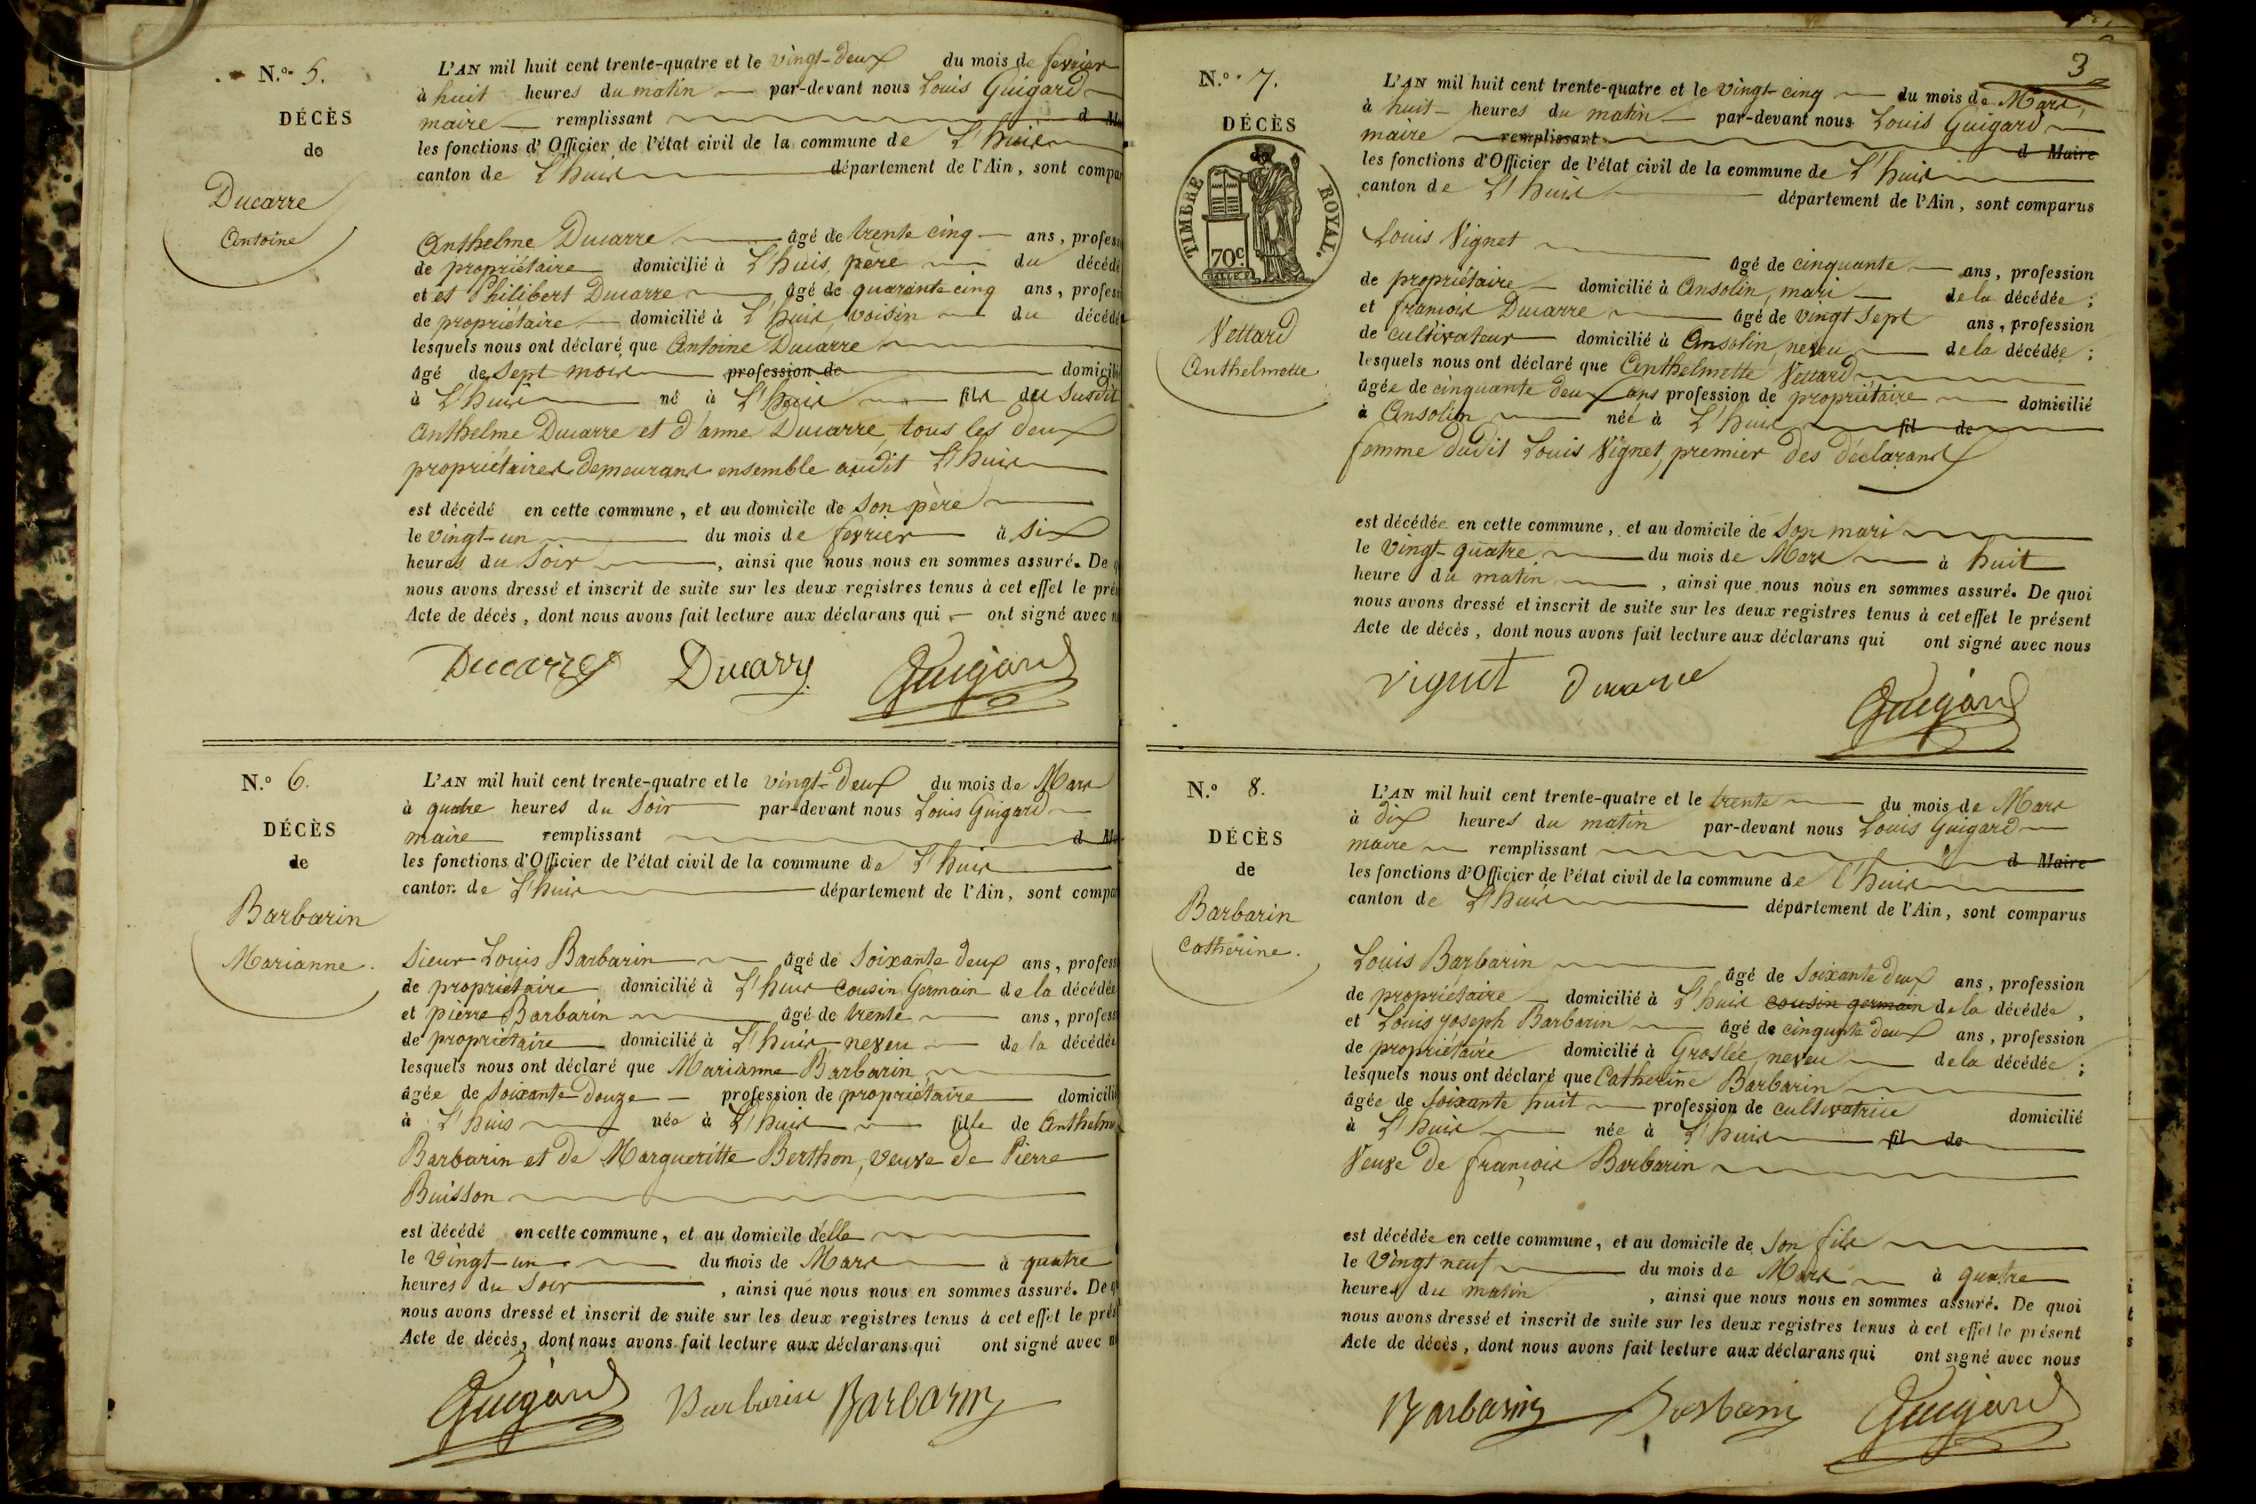 N.º 5.
DÉCÈS
de
Ducarre
Antoine
L'AN mil huit cent trente-quatre et le vingt-deux du mois de fevrier
à huit heures du matin par-devant nous Louis Guigard
maire remplissant d Ma
les fonctions d'Officier de l'état civil de la commune de L'huis
canton de L'huis département de l'Ain, sont compar
Anthelme Ducarre âgé de trente cinq ans, profess
de propriétaire domicilié à L'huis, père du décédé
et et Philibert Ducarre âgé de quarante cinq ans, profess
de propriétaire domicilié à L'huis, voisin du décédé
lesquels nous ont déclaré que Antoine Ducarre
âgé de Sept mois profession de domicilié
à L'huis né à L'huis fils du Susdit
Anthelme Ducarre et d'anne Ducarre, tous les deux
propriétaires demeurans ensemble audit L'huis
est décédé en cette commune, et au domicile de Son père
le vingt-un du mois de fevrier à Six
heures du Soir, ainsi que nous nous en sommes assuré. De q
nous avons dressé et inscrit de suite sur les deux registres tenus à cet effet le prés
Acte de décès, dont nous avons fait lecture aux déclarans qui ont signé avec n
Ducarre Ducarre Guigard
N.º 6.
DÉCÈS
de
Barbarin
Marianne.
L'AN mil huit cent trente-quatre et le vingt-deux du mois de Mars
à quatre heures du Soir par-devant nous Louis Guigard
maire remplissant d Ma
les fonctions d'Officier de l'état civil de la commune de L'huis
canton de L'huis département de l'Ain, sont compar
Sieur Louis Barbarin âgé de Soixante deux ans, profess
de propriétaire domicilié à L'huis Cousin Germain de la décédée
et pierre Barbarin âgé de trente ans, profess
de propriétaire domicilié à L'huis neveu de la décédée
lesquels nous ont déclaré que Marianne Barbarin
âgée de Soixante Douze profession de propriétaire domicilié
à L'huis née à L'huis fille de Anthelme
Barbarin et de Margueritte Berthon, veuve de Pierre
Buisson
est décédé en cette commune, et au domicile d'elle
le Vingt-un du mois de Mars à quatre
heures du Soir, ainsi que nous nous en sommes assuré. De q
nous avons dressé et inscrit de suite sur les deux registres tenus à cet effet le prés
Acte de décès, dont nous avons fait lecture aux déclarans qui ont signé avec n
Guigard Barbarin Barbarin
3
N.º 7.
DÉCÈS
TIMBRE ROYAL.
70c.
Vettard
Anthelmette
L'AN mil huit cent trente-quatre et le vingt-cinq du mois de Mars,
à huit heures du matin par-devant nous Louis Guigard
maire remplissant d Maire
les fonctions d'Officier de l'état civil de la commune de L'huis
canton de L'huis département de l'Ain, sont comparus
Louis Vignet âgé de cinquante ans, profession
de propriétaire domicilié à Ansolin, mari de la décédée;
et françois Ducarre âgé de vingt Sept ans, profession
de cultivateur domicilié à Ansolin, neveu de la décédée;
lesquels nous ont déclaré que Anthelmette Vettard
âgée de cinquante deux ans profession de propriétaire domicilié
à Ansolin née à L'huis fil de
femme dudit Louis Vignet, premier des déclarans
est décédée en cette commune, et au domicile de Son mari
le Vingt-quatre du mois de Mars à huit
heure du matin, ainsi que nous nous en sommes assuré. De quoi
nous avons dressé et inscrit de suite sur les deux registres tenus à cet effet le présent
Acte de décès, dont nous avons fait lecture aux déclarans qui ont signé avec nous
Vignet Ducarre Guigard
N.º 8.
DÉCÈS
de
Barbarin
Catherine.
L'AN mil huit cent trente-quatre et le trente du mois de Mars
à dix heures du matin par-devant nous Louis Guigard
maire remplissant d Maire
les fonctions d'Officier de l'état civil de la commune de l'huis
canton de L'huis département de l'Ain, sont comparus
Louis Barbarin âgé de Soixante deux ans, profession
de propriétaire domicilié à L'huis cousin germain de la décédée,
et Louis Joseph Barbarin âgé de cinquante deux ans, profession
de propriétaire domicilié à Groslée, neveu de la décédée;
lesquels nous ont déclaré que Catherine Barbarin
âgée de Soixante huit profession de cultivatrice domicilié
à L'huis née à L'huis fil de
Veuve de françois Barbarin
est décédée en cette commune, et au domicile de Son fils
le Vingt neuf du mois de Mars à quatre
heures du matin, ainsi que nous nous en sommes assuré. De quoi
nous avons dressé et inscrit de suite sur les deux registres tenus à cet effet le présent
Acte de décès, dont nous avons fait lecture aux déclarans qui ont signé avec nous
Barbarin Barbarin Guigard